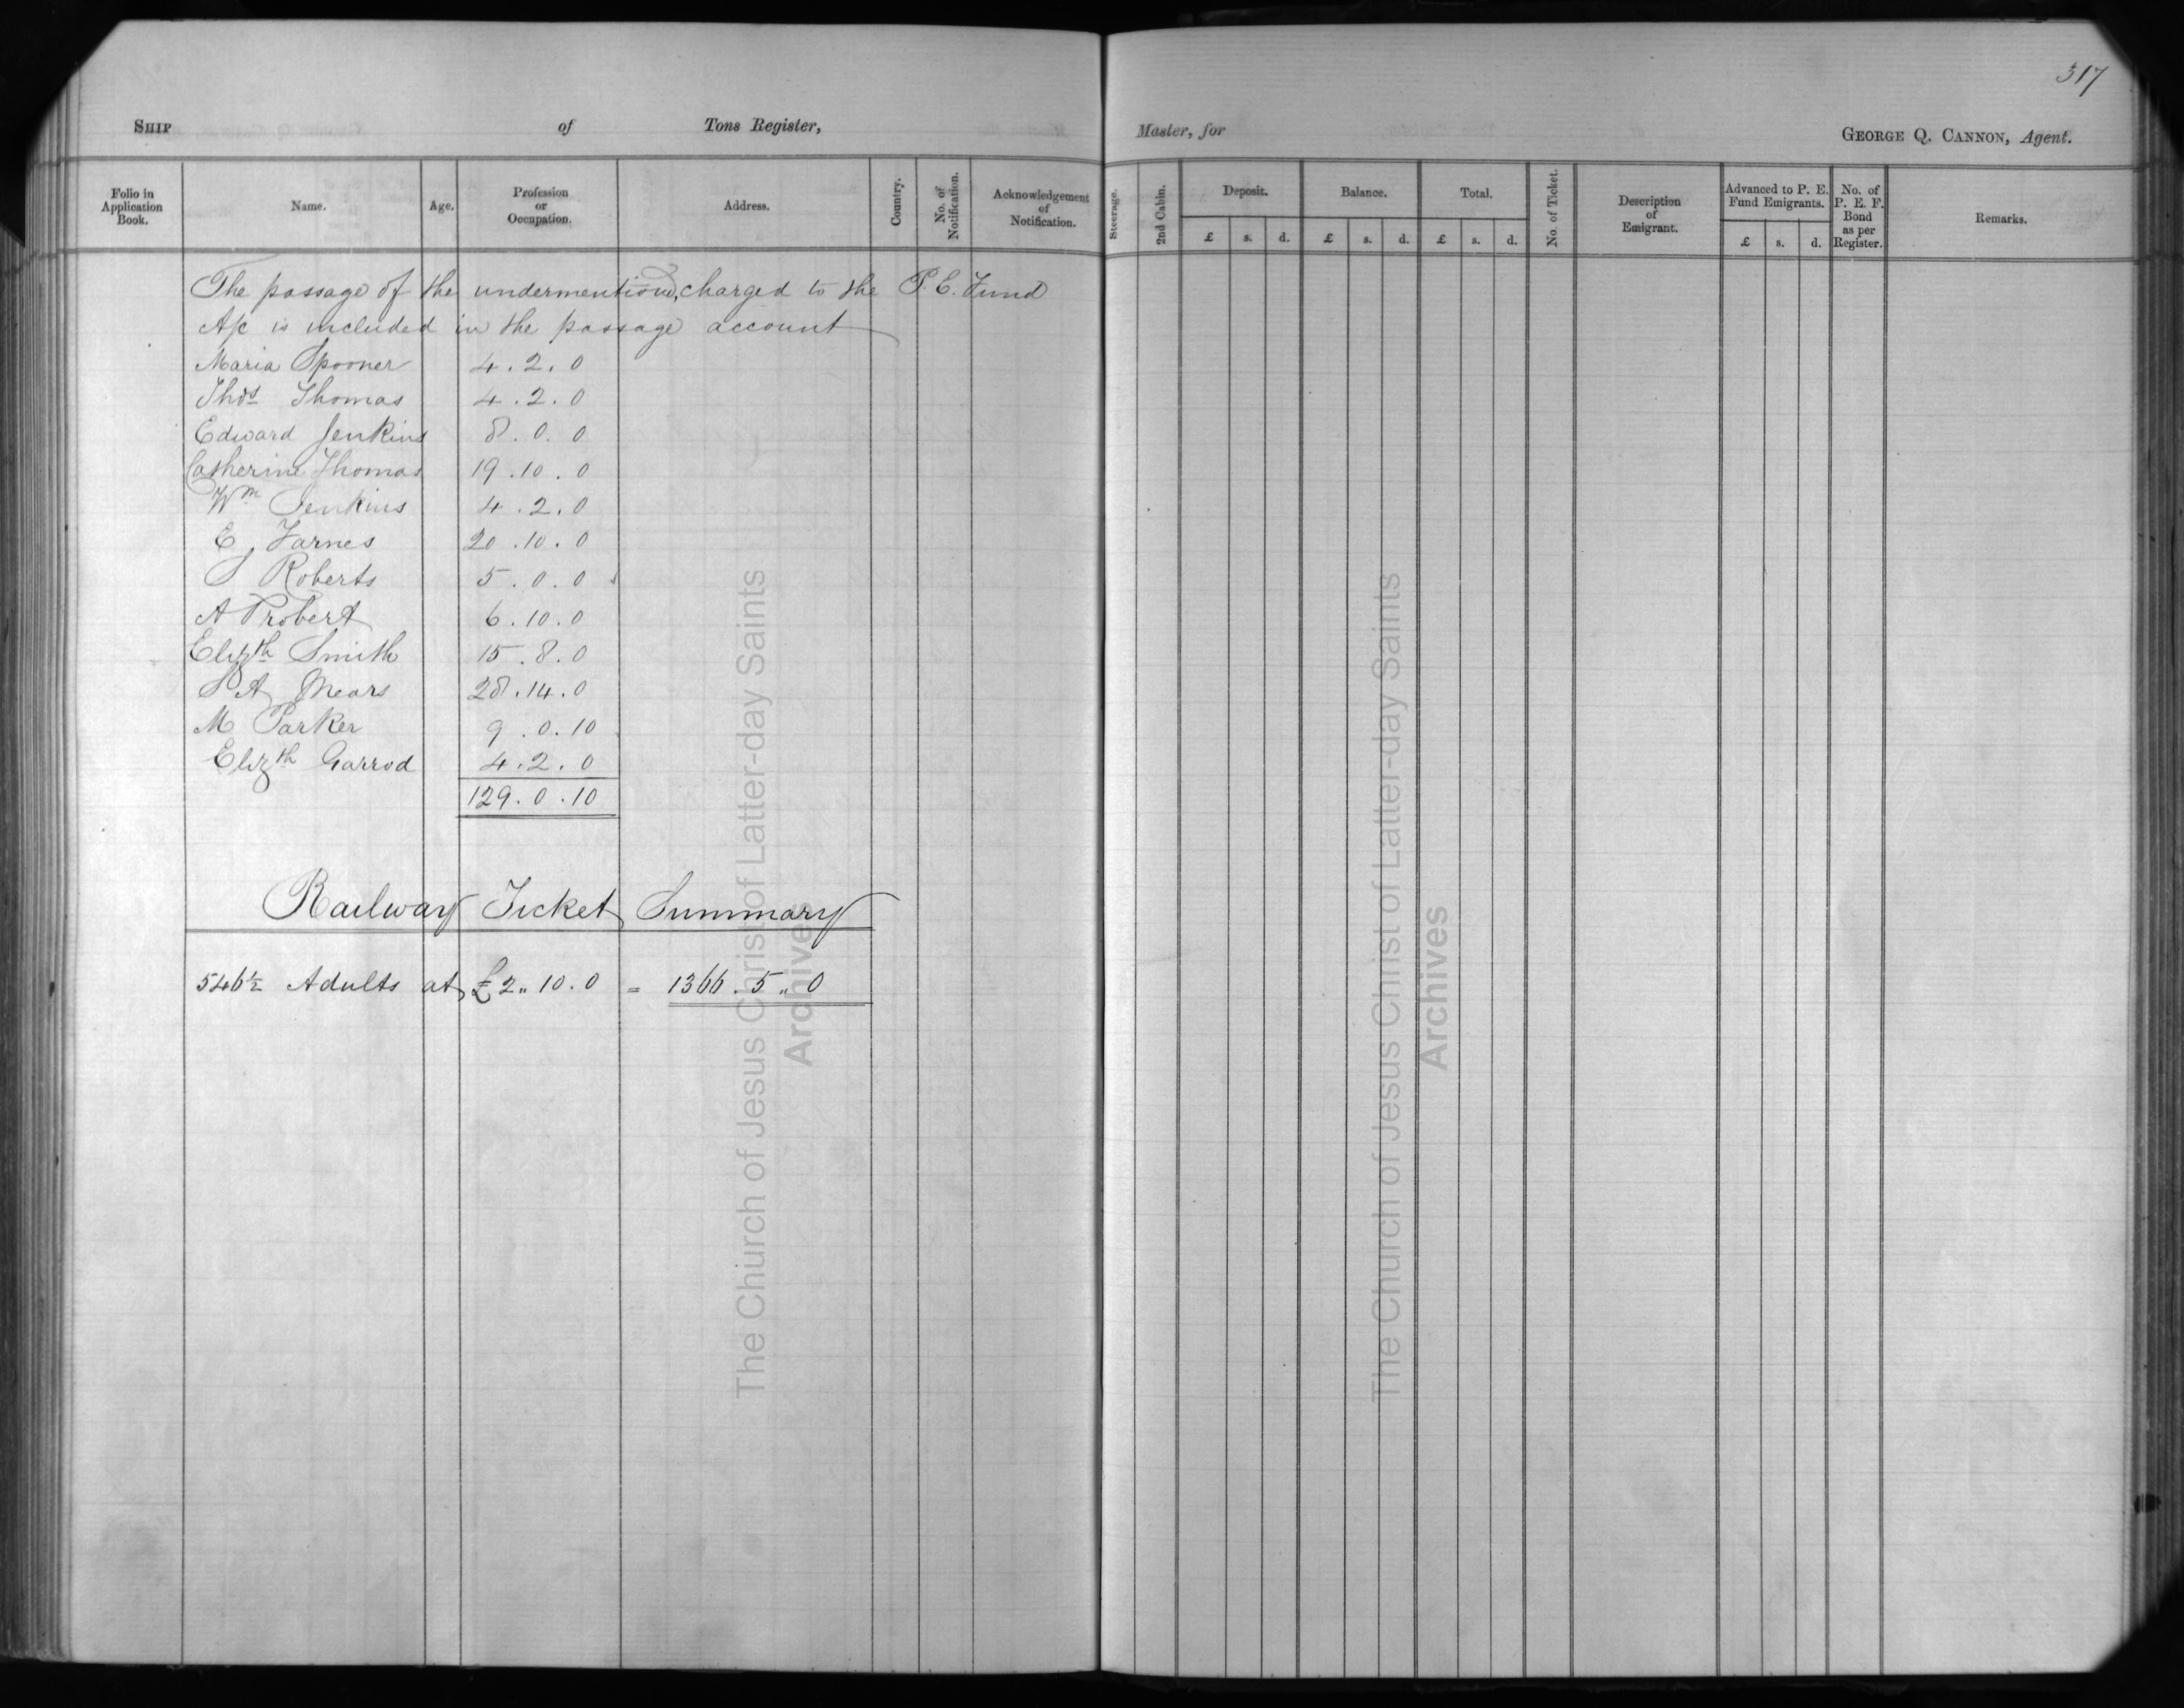 317
SHIP of Tons Register, Master, for GEORGE Q. CANNON, Agent.
Folio in Application Book. Name. Age. Profession or Occupation. Address. Country. No. of Notification. Acknowledgement of Notification. Steerage. 2nd Cabin. Deposit. Balance. Total. No. of Ticket. Description of Emigrant. Advanced to P. E. Fund Emigrants. No. of P. E. F. Bond as per Register. Remarks.
£ s. d. £ s. d. £ s. d. £ s. d.
The passage of the undermentioned, charged to the P. E. Fund
A/c is included in the passage account
Maria Spooner 4 . 2 . 0
Thos Thomas 4 . 2 . 0
Edward Jenkins 8 . 0 . 0
Catherine Thomas 19 . 10 . 0
Wm Jenkins 4 . 2 . 0
E Farnes 20 . 10 . 0
S Roberts 5 . 0 . 0
A Probert 6 . 10 . 0
Elizth Smith 15 . 8 . 0
S A Mears 28 . 14 . 0
M Parker 9 . 0 . 10
Elizth Garrod 4 . 2 . 0
129 . 0 . 10
Railway Ticket Summary
546½ Adults at £2 " 10 . 0 = 1366 . 5 " 0
The Church of Jesus Christ of Latter-day Saints
Archives
The Church of Jesus Christ of Latter-day Saints
Archives